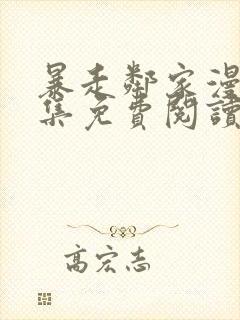 暴走鄰家漫
集免費閱讀
高宏志